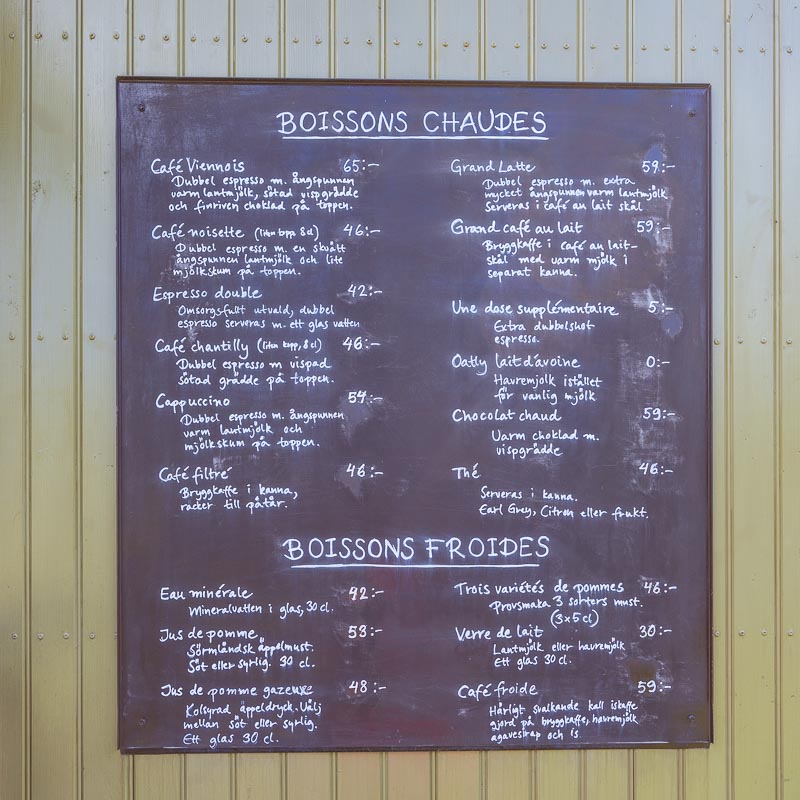 BOISSONS CHAUDES
Café Viennois 65:-
Dubbel espresso m. ångspunnen
varm lantmjölk, sötad vispgrädde
och finriven choklad på toppen.
Café noisette (liten kopp 8 cl) 46:-
Dubbel espresso m. en skvätt
ångspunnen lantmjölk och lite
mjölkskum på toppen.
Espresso double 42:-
Omsorgsfullt utvald, dubbel
espresso serveras m. ett glas vatten
Café chantilly (liten kopp, 8 cl) 46:-
Dubbel espresso m vispad
sötad grädde på toppen.
Cappuccino 54:-
Dubbel espresso m. ångspunnen
varm lantmjölk och
mjölkskum på toppen.
Café filtré 46:-
Bryggkaffe i kanna,
räcker till påtår.
Grand Latte 59:-
Dubbel espresso m. extra
mycket ångspunnen varm lantmjölk
Serveras i café au lait skål
Grand café au lait 59:-
Bryggkaffe i café au lait-
skål med varm mjölk i
separat kanna.
Une dose supplémentaire 5:-
Extra dubbelshot
espresso.
Oatly lait d'avoine 0:-
Havremjölk istället
för vanlig mjölk
Chocolat chaud 59:-
Varm choklad m.
vispgrädde
Thé 46:-
Serveras i kanna.
Earl Grey, Citron eller frukt.
BOISSONS FROIDES
Eau minérale 42:-
Mineralvatten i glas, 30 cl.
Jus de pomme 53:-
Sörmländsk äppelmust.
Söt eller syrlig. 30 cl.
Jus de pomme gazeuze 48:-
Kolsyrad äppeldryck. Välj
mellan söt eller syrlig.
Ett glas 30 cl.
Trois variétés de pommes 46:-
Provsmaka 3 sorters must.
(3x5 cl)
Verre de lait 30:-
Lantmjölk eller havremjölk
Ett glas 30 cl.
Café froide 59:-
Härligt svalkande kall iskaffe
gjord på bryggkaffe, havremjölk
agavesirap och is